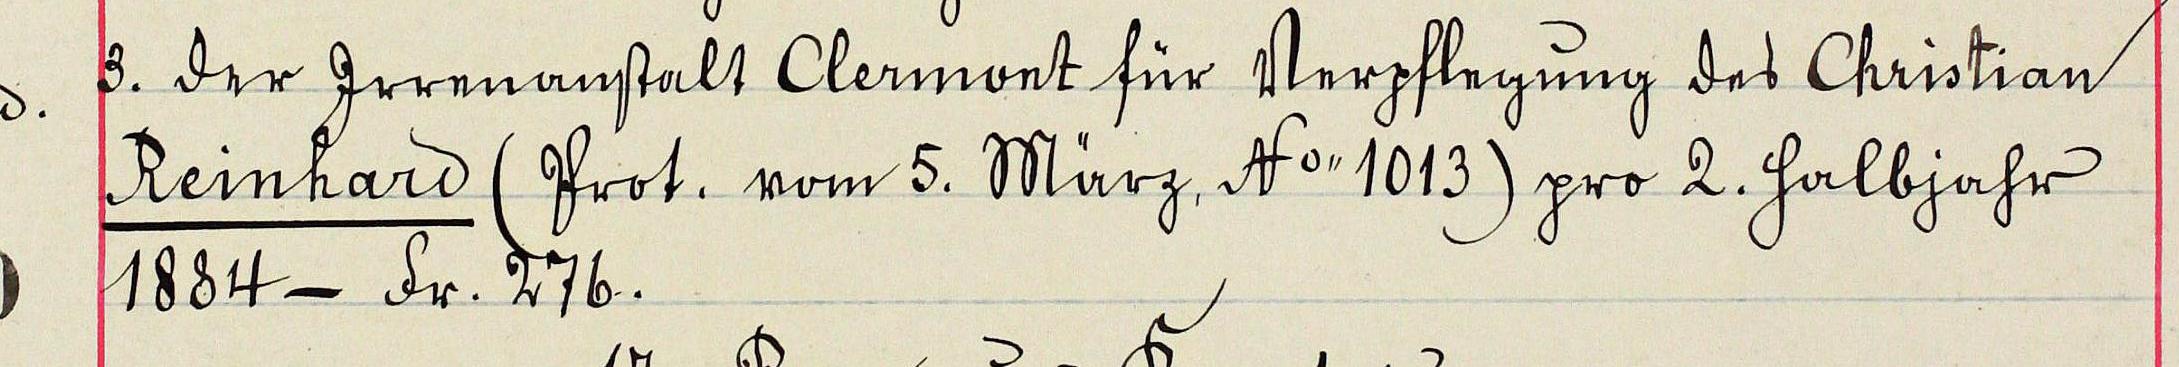 3. der Irrenanstalt Clermont für Verpflegung des Christian
Reinhard (Prot. vom 5. März, No 1013) pro 2. Halbjahr
1884 – Fr. 276.